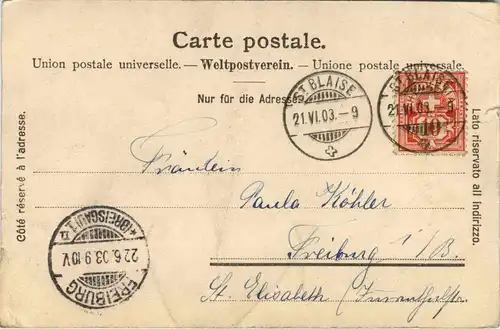 Carte postale.
Union postale universelle. — Weltpostverein. — Unione postale universale.
Nur für die Adresse.
ST BLAISE
21.VI.03.–9
ST BLAISE
21.VI.03.–9
10
Côté réservé à l'adresse.
Lato riservato all'indirizzo.
Fräulein
Paula Köhler
Freiburg i/B.
St. Elisabeth
FREIBURG
22.6.03.9-10V.
*(BREISGAU)1